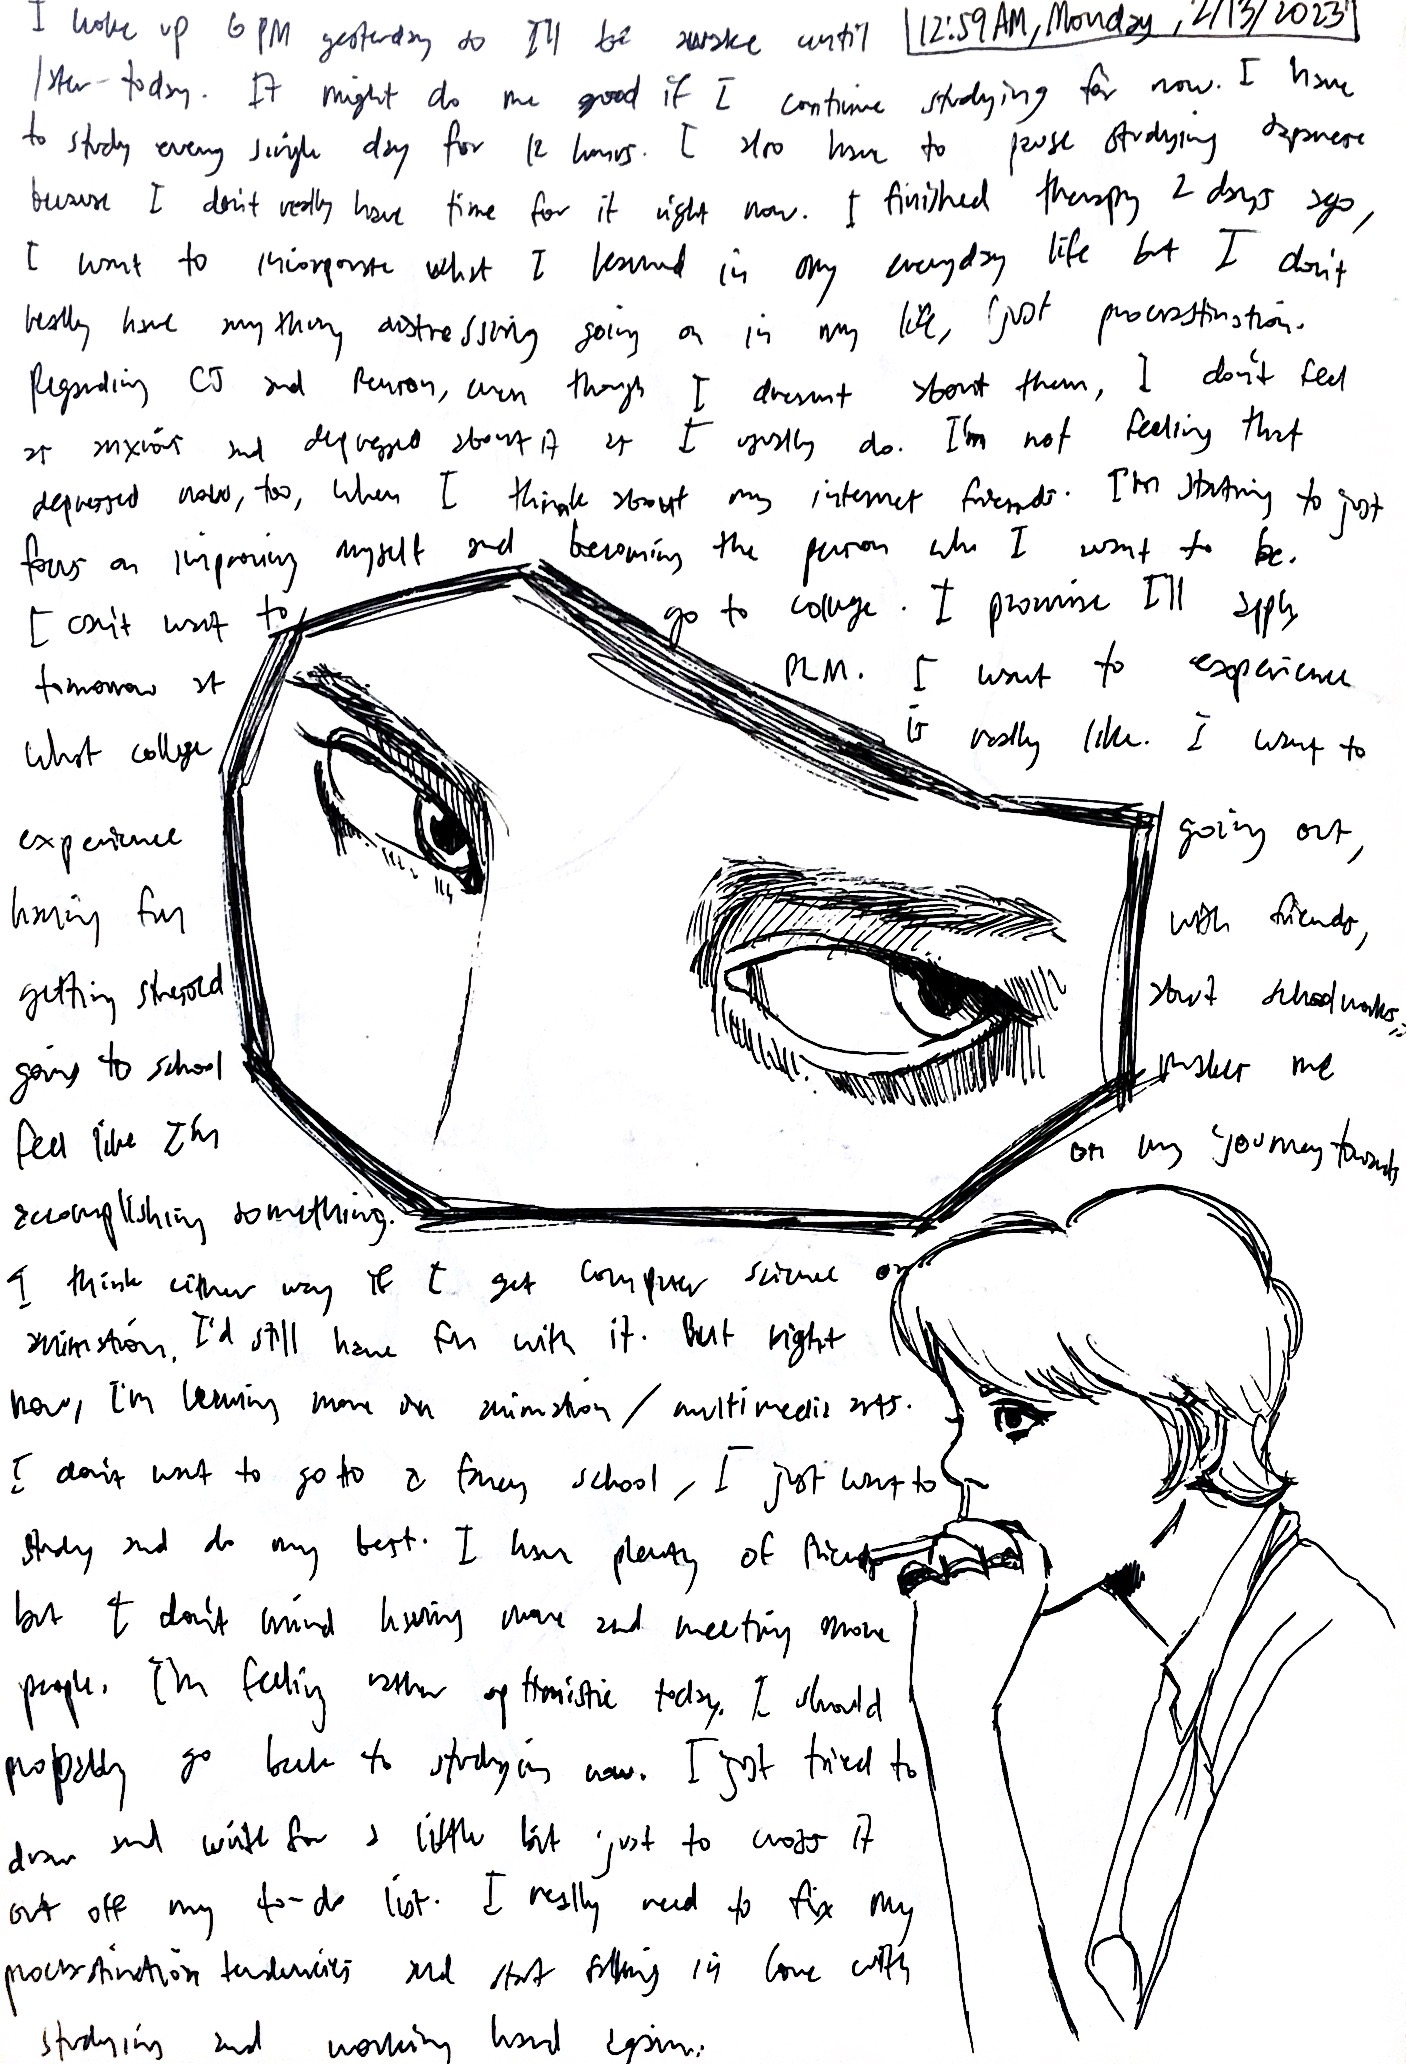 12:59 AM, Monday, 2/13/2023
I woke up 6 PM yesterday so I'll be awake until
later today. It might do me good if I continue studying for now. I have
to study every single day for 12 hours. I also have to pause studying Japanese
because I don't really have time for it right now. I finished therapy 2 days ago,
I want to incorporate what I learned in my everyday life but I don't
really have anything distressing going on in my life, just procrastination.
Regarding CJ and even though I dreamt about them, I don't feel
as anxious and depressed about it as I usually do. I'm not feeling that
depressed now, too, when I think about my internet friends. I'm starting to just
focus on improving myself and becoming the person who I want to be.
I can't wait to go to college. I promise I'll apply
tomorrow at PLM. I want to experience
what college is really like. I want to
experience going out,
having fun with friends,
getting stressed about schoolworks,
going to school makes me
feel like I'm on my journey towards
accomplishing something.
I think either way if I get computer science or
animation, I'd still have fun with it. But right
now, I'm leaning more on animation/multimedia arts.
I don't want to go to a fancy school, I just want to
study and do my best. I have plenty of friends
but I don't mind having more and meeting more
people. I'm feeling rather optimistic today. I should
probably go back to studying now. I just tried to
draw and write for a little bit just to cross it
out off my to-do list. I really need to fix my
procrastination tendencies and start falling in love with
studying and working hard again.